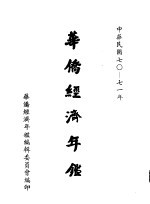 中華民國七〇—七一年
華僑經濟年鑑
華僑經濟年鑑編輯委員會編印